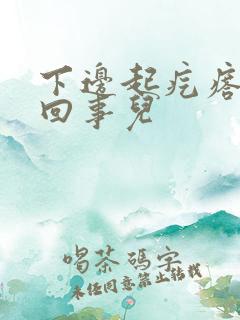 下邊起疙瘩
回事兒
喝茶碼字
未經同意禁止轉載